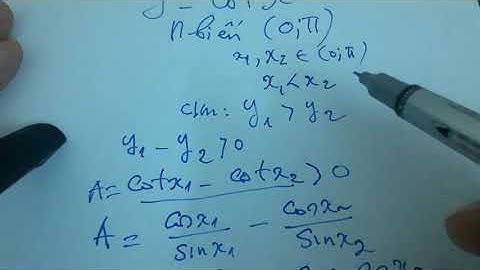 y = cot x
n biến (0,π)
x₁, x₂ ∈ (0,π)
x₁ < x₂
clm: y₁ > y₂
y₁ - y₂ > 0
A = cotx₁ - cotx₂ > 0
A = cosx₁/sinx₁ - cosx₂/sinx₂